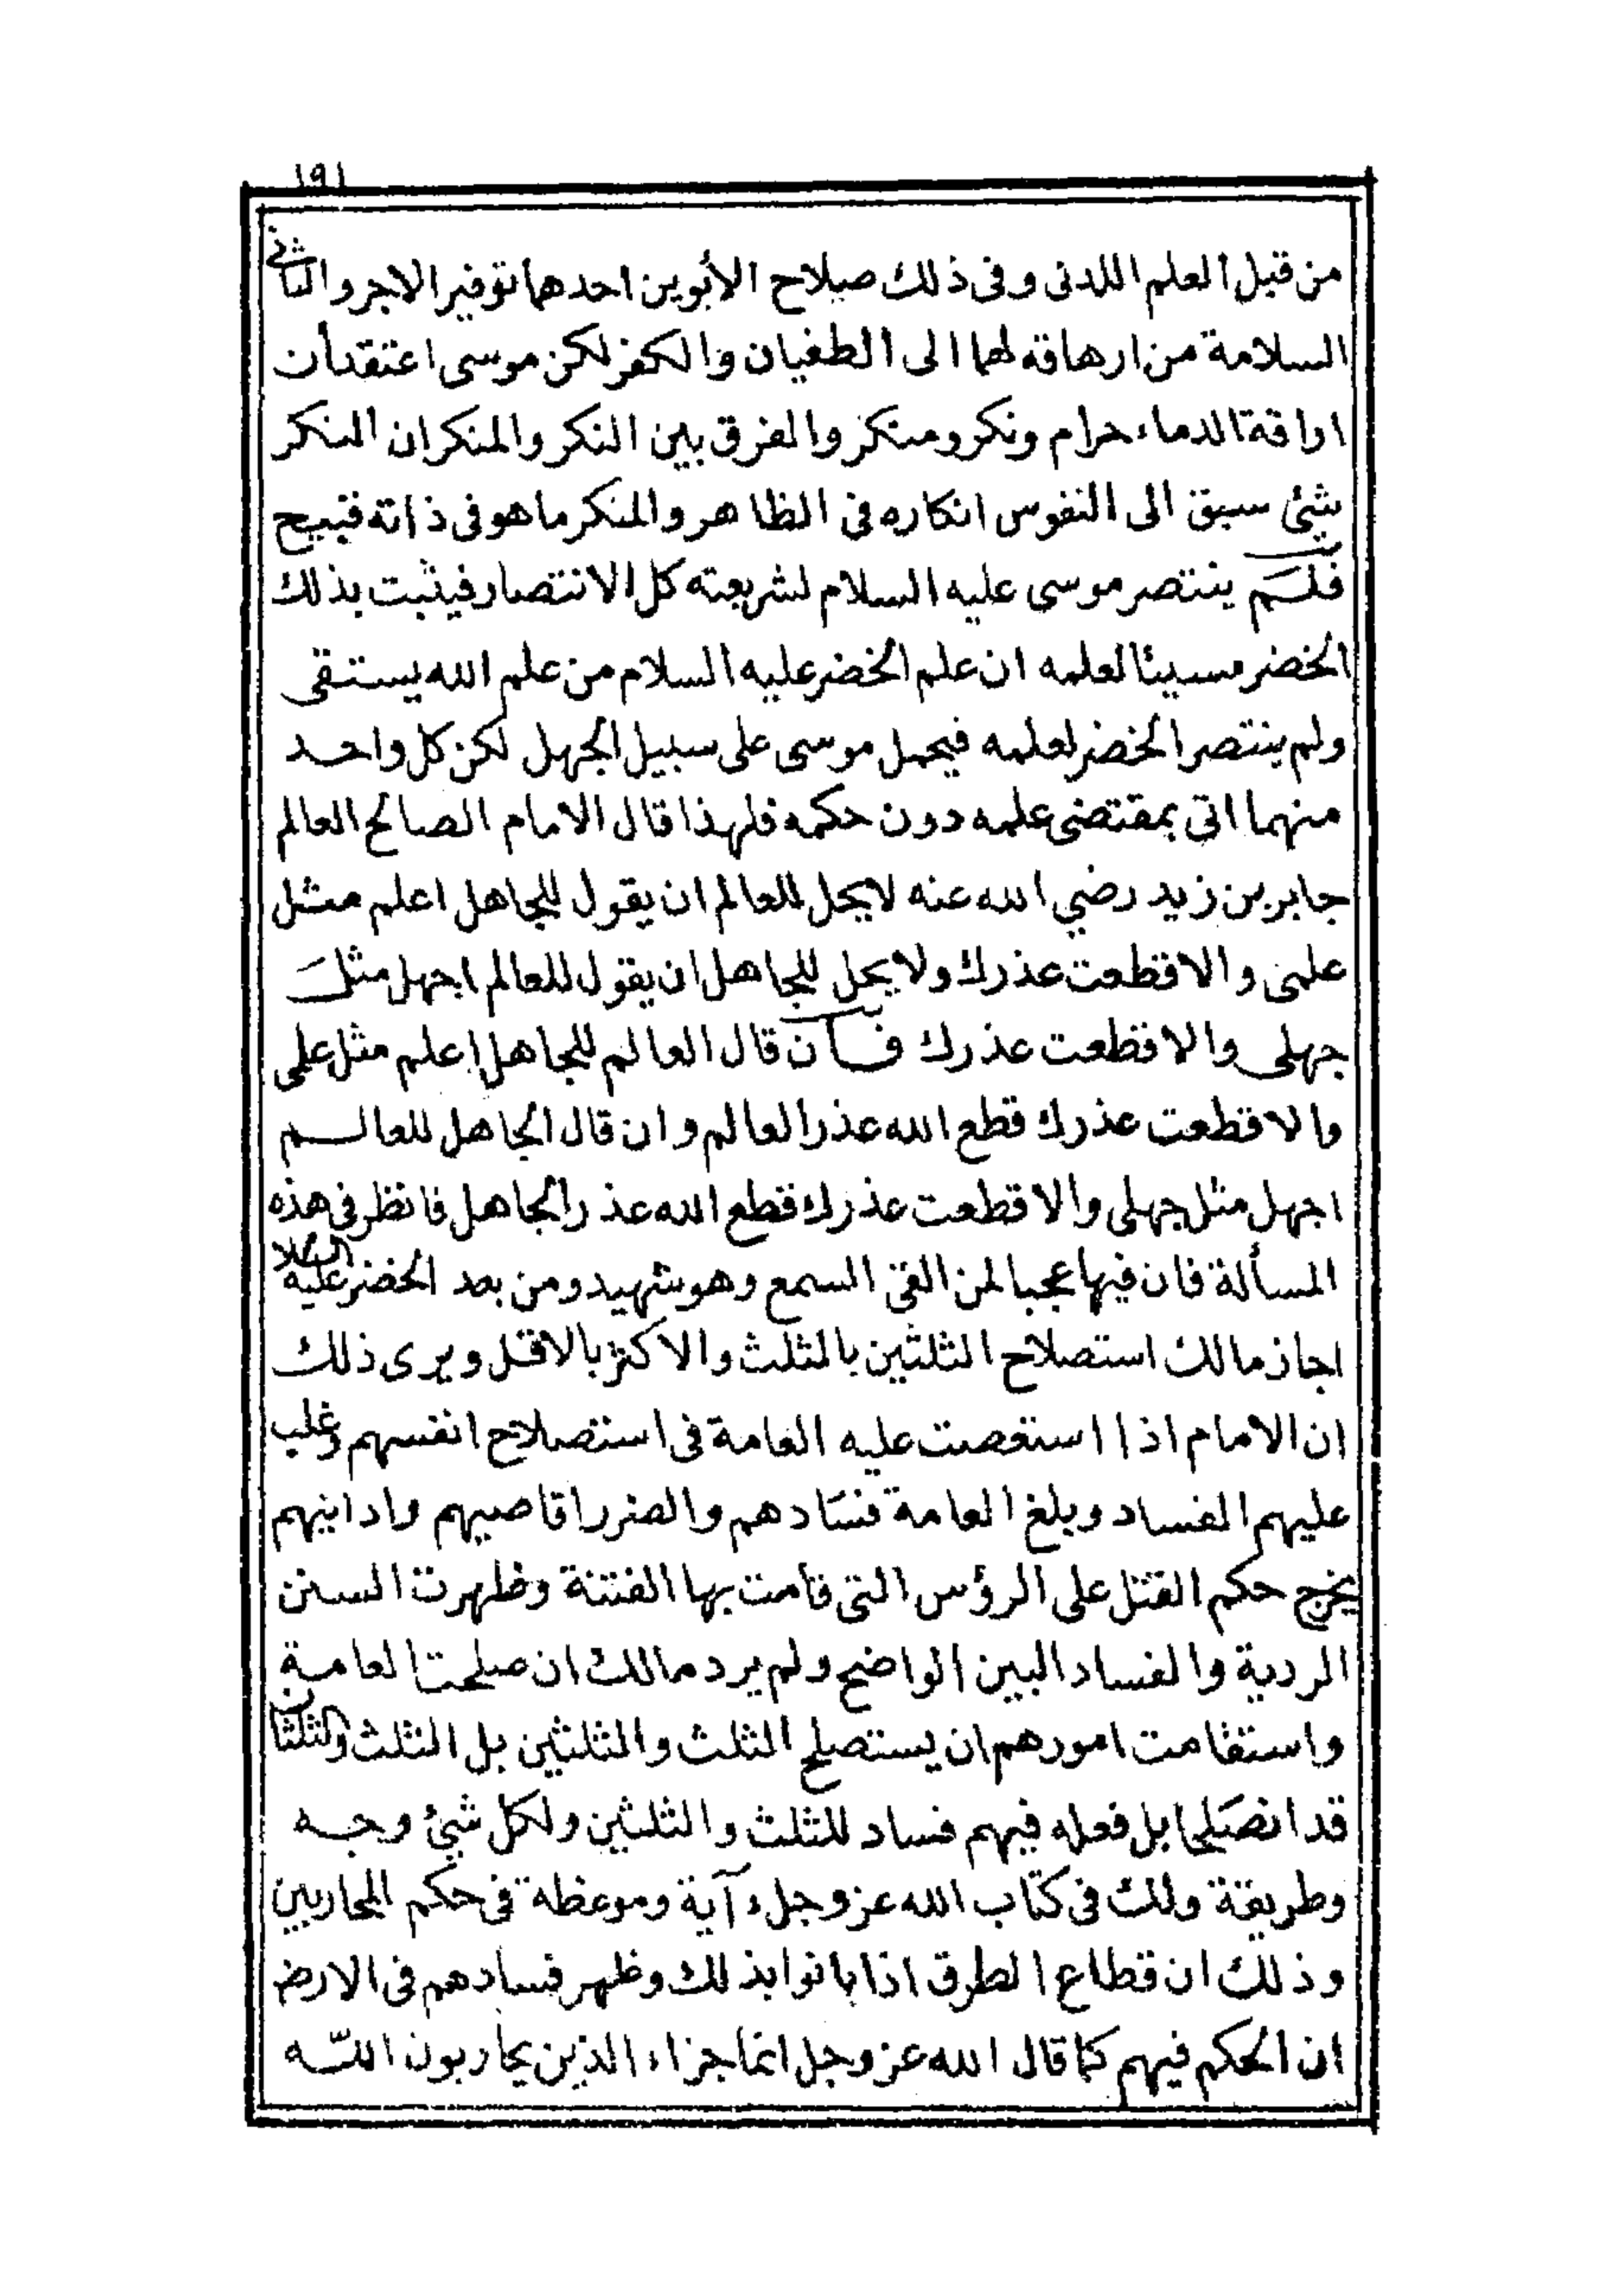 ١٩١
من قبل العلم اللدنى وفى ذلك صلاح الأبوين احدهما توفير الاجر والثانى
السلامة من ارهاقه لهما الى الطغيان والكفر لكن موسى اعتقد أن
اراقة الدماء حرام ونكر ومنكر والفرق بين النكر والمنكر ان المنكر
شئ سبق الى النفوس انكاره فى الظاهر والمنكر ما هو فى ذاته قبيح
فلم ينتصر موسى عليه السلام لشريعته كل الانتصار فيثبت بذلك
الخضر مسيئا لعلمه ان علم الخضر عليه السلام من علم الله يستقى
ولم ينتصر الخضر لعلمه فيحمل موسى على سبيل الجهل لكن كل واحد
منهما اتى بمقتضى علمه دون حكمه فلهذا قال الامام الصالح العالم
جابر بن زيد رضي الله عنه لا يحل للعالم ان يقول للجاهل اعلم مثل
علمى والا قطعت عذرك ولا يحل للجاهل ان يقول للعالم اجهل مثل
جهلى والا قطعت عذرك فان قال العالم للجاهل اعلم مثل علمى
والا قطعت عذرك قطع الله عذر العالم وان قال الجاهل للعالم
اجهل مثل جهلى والا قطعت عذرك قطع الله عذر الجاهل فانظر فى هذه
المسألة فان فيها عجبا لمن القى السمع وهو شهيد ومن بعد الخضر عليه السلام
اجاز مالك استصلاح الثلثين بالثلث والاكثر بالاقل ويرى ذلك
ان الامام اذا استعصت عليه العامة فى استصلاح انفسهم وغلب
عليهم الفساد وبلغ العامة فسادهم والضرر اقاصيهم وادانيهم
يخرج حكم القتل على الرؤس التى قامت بها الفتنة وظهرت السنن
الردية والفساد البين الواضح ولم يرد مالك ان صلحت العامة
واستقامت امورهم ان يستصلح الثلث والثلثين بل الثلث والثلثان
قد انصلحا بل فعله فيهم فساد للثلث والثلثين ولكل شئ وجه
وطريقة ولك فى كتاب الله عز وجل آية وموعظة فى حكم المحاربين
وذلك ان قطاع الطرق اذا بانوا بذلك وظهر فسادهم فى الارض
ان الحكم فيهم كما قال الله عز وجل انما جزاء الذين يحاربون الله